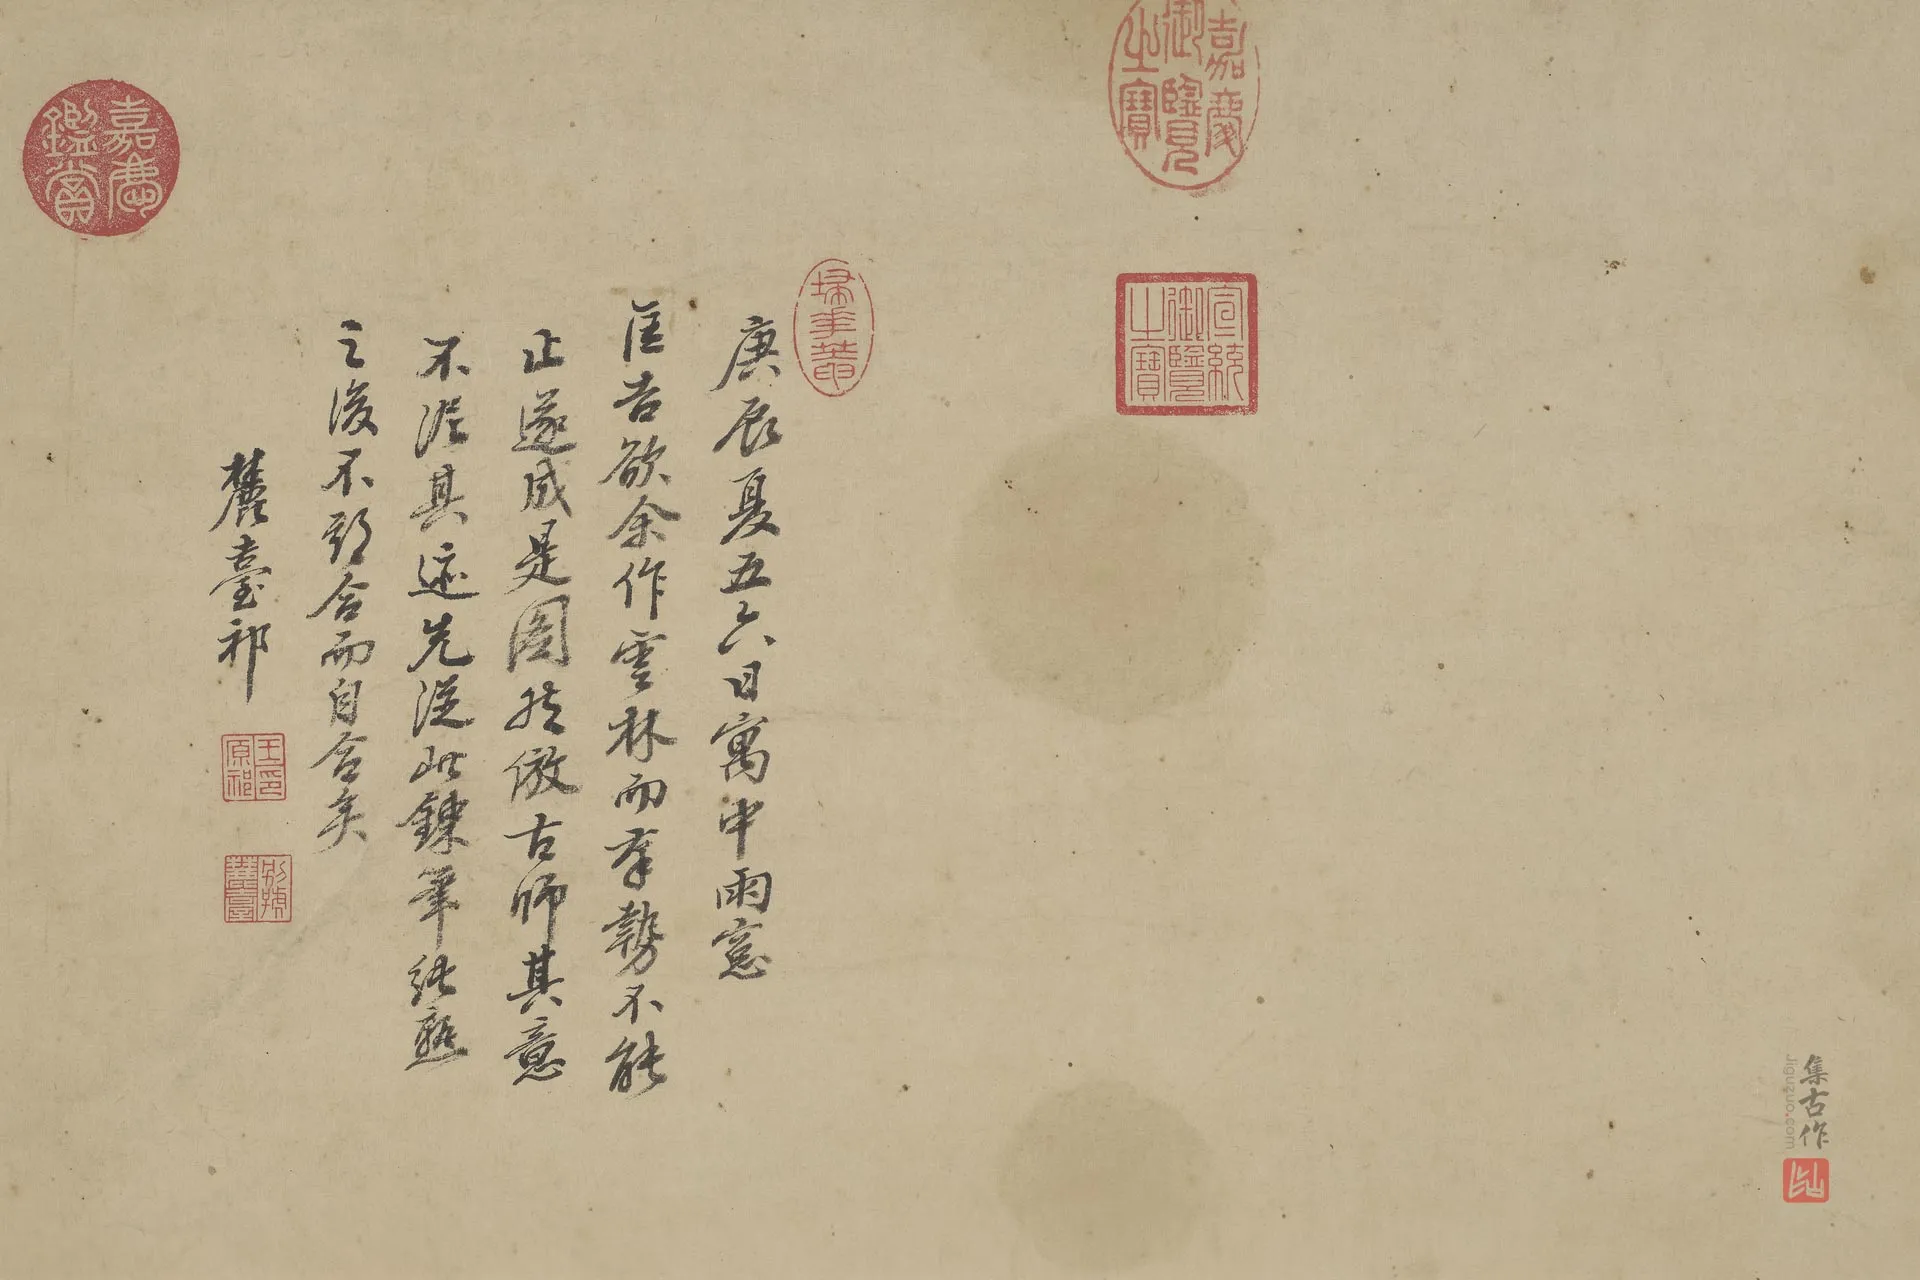 集古作
jiguzuo.com
嘉慶御覽之寶
宣統御覽之寶
掃華庵
庚辰夏五六日寓中雨窓
匡吉欲余作雲林而勢不能
止遂成是圖然倣古師其意
不泥其迹先從此鍊筆純熟
之後不期合而自合矣
麓臺祁
王印原祁
別號麓臺
嘉慶鑑賞